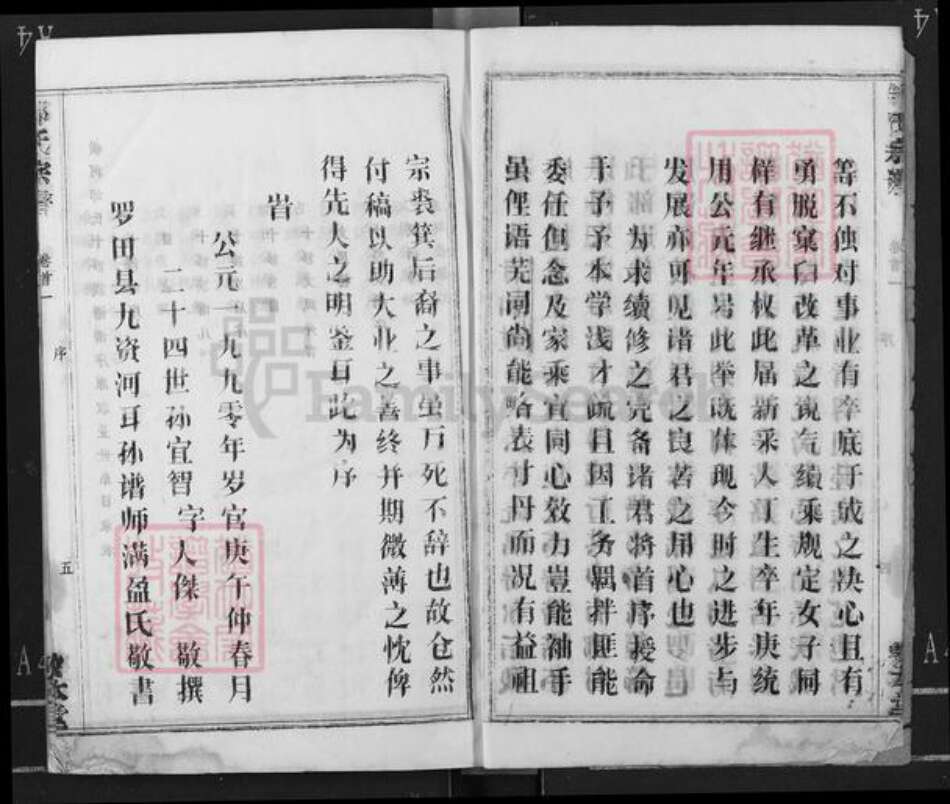 等不蚀对事业有卒底于成之决心且有
勇脱窠臼改革之锐气续乘规定女子同
样有继承权此届新采人丁生卒年庚统
用公元年号此举既体现今时之进步与
发展亦可见谱君之良苦之用心也
为求续修之完备诸君将首序授命
于予予本学浅才疏且因工务羁拌匪能
委任但念及家乘宜同心效力豈能袖手
虽俚语芜词尚能略表寸丹而况有益祖
宗裘箕后裔之事虽万死不辞也故仓然
付稿以助大业之善终并期微薄之忱俾
得先人之明鉴耳此为序
旹
公元一九九零年岁官庚午仲春月
二十四世孙宜智 字人傑 敬撰
罗田县九资河耳孙谱师满盈氏敬书
氏宗谱
卷首一
序
五
FamilySearch